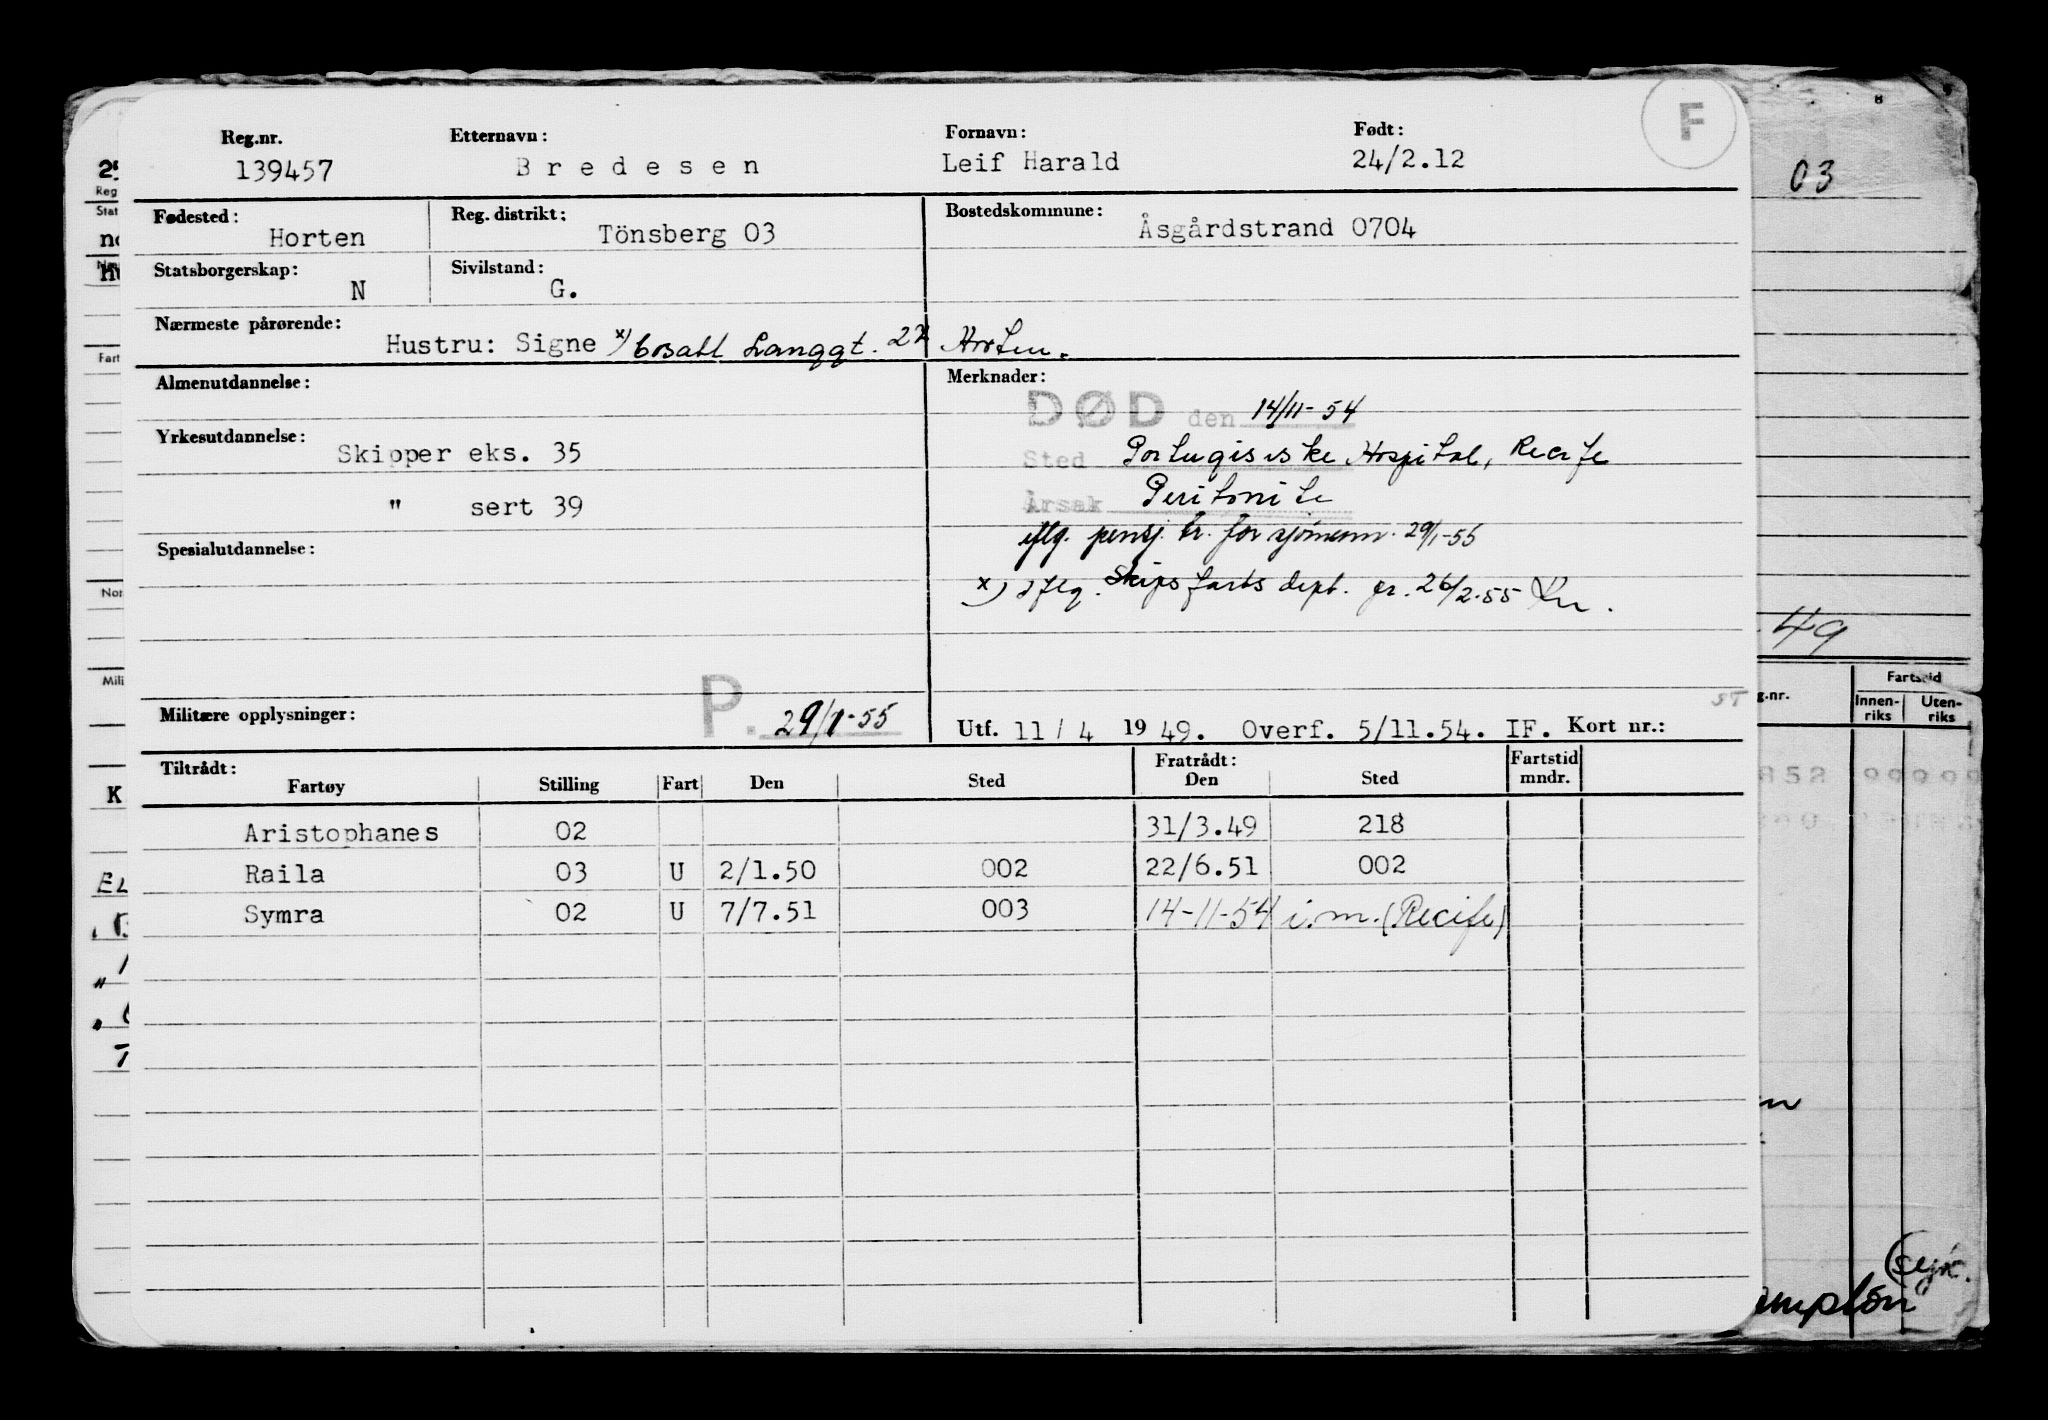 Reg.nr. Etternavn: Fornavn: Født: F
139457 Bredesen Leif Harald 24/2.12
Fødested: Reg. distrikt: Bostedskommune:
Horten Tönsberg 03 Åsgårdstrand 0704
Statsborgerskap: Sivilstand:
N G.
Nærmeste pårørende:
Hustru: Signe x) bosatt Langgt. Horten.
Almenutdannelse: Merknader:
DØD den 14/11-54
Yrkesutdannelse:
Skipper eks. 35 Sted Portugisiske Hospital, Recife
" sert 39 Årsak Peritonite
iflg. pensj. tr. for sjömenn. 29/1-55
Spesialutdannelse:
x) iflg. Skipsfarts dept. 26/2-55
Militære opplysninger: P. 29/1-55
Utf. 11/4 1949. Overf. 5/11.54. IF. Kort nr.:
Tiltrådt: Fratrådt: Fartstid
Fartøy Stilling Fart Den Sted Den Sted mndr.
Aristophanes 02 31/3.49 218
Raila 03 U 2/1.50 002 22/6.51 002
Symra 02 U 7/7.51 003 14-11-54 i.m. (Recife)
03
49
Fartstid
g.nr. Innen-riks Uten-riks